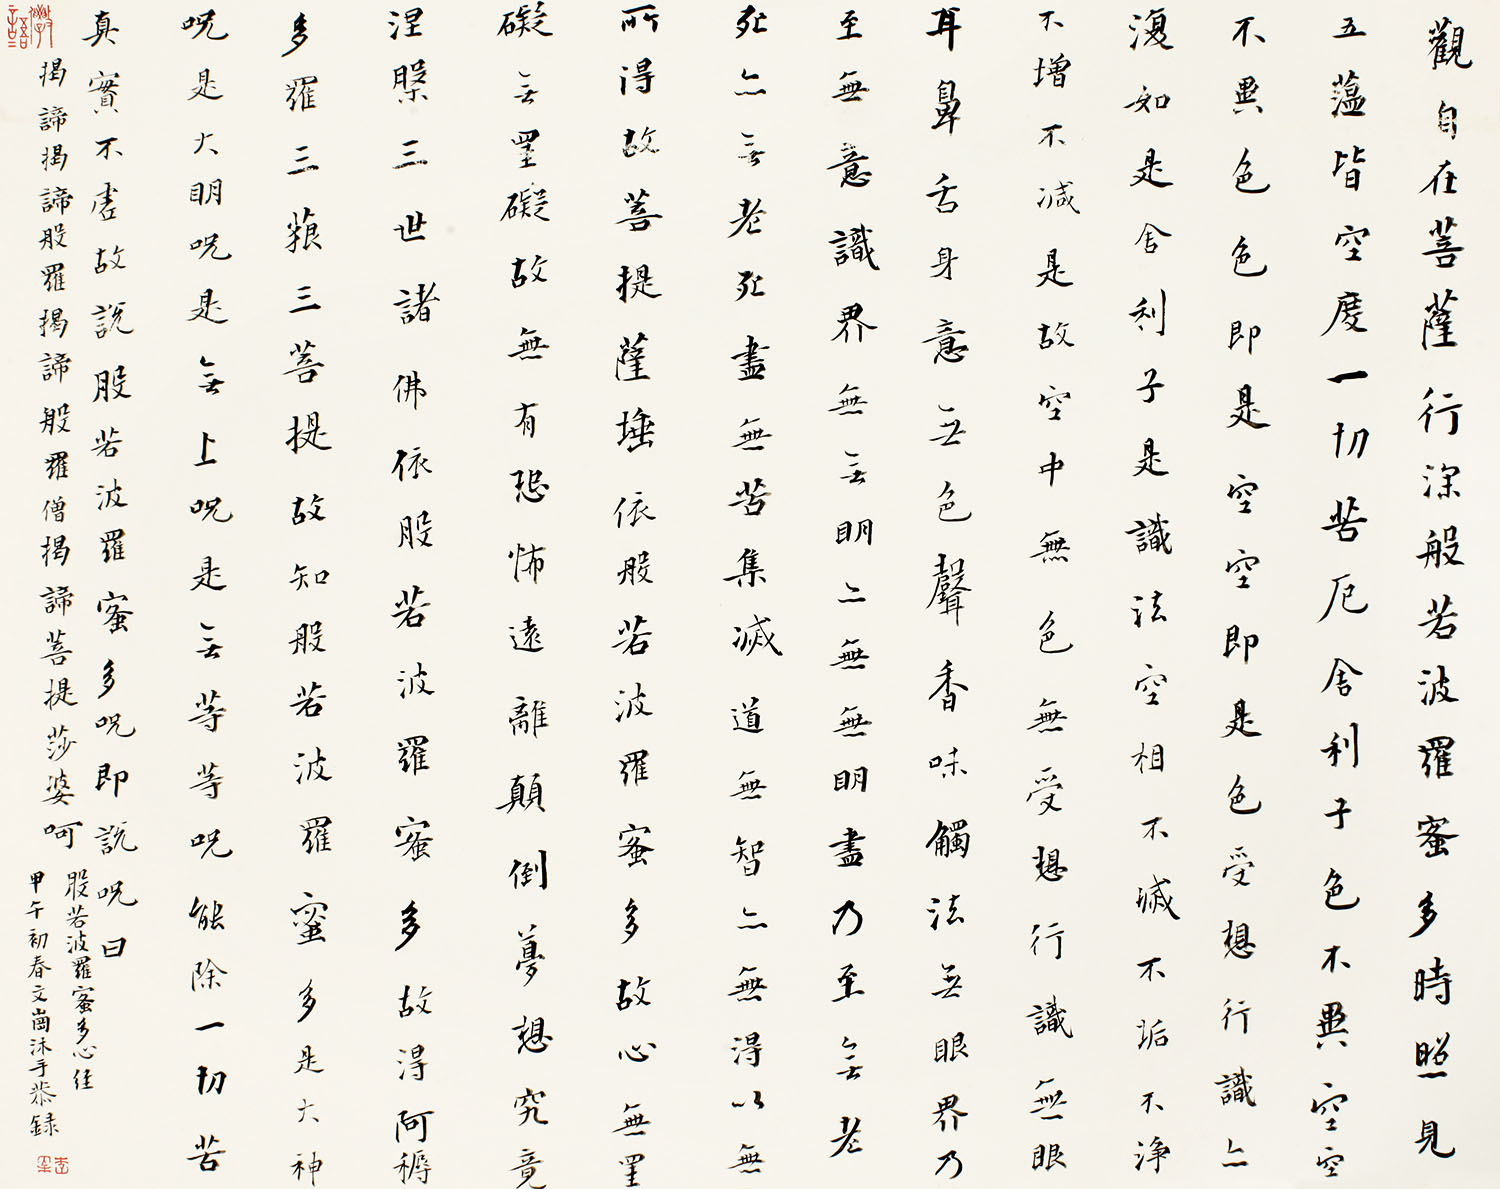 觀自在菩薩行深般若波羅蜜多時照見
五蘊皆空度一切苦厄舍利子色不異空空
不異色色即是空空即是色受想行識亦
復如是舍利子是識法空相不滅不垢不淨
不增不減是故空中無色無受想行識無眼
耳鼻舌身意无色聲香味觸法无眼界乃
至無意識界無无明亦無無明盡乃至无老
死亦无老死盡無苦集滅道無智亦無得以無
所得故菩提薩埵依般若波羅蜜多故心無罣
礙无罣礙故無有恐怖遠離顛倒夢想究竟
涅槃三世諸佛依般若波羅蜜多故得阿耨
多羅三藐三菩提故知般若波羅蜜多是大神
呪是大明呪是无上呪是无等等呪能除一切苦
真實不虛故說般若波羅蜜多呪即說呪曰
揭諦揭諦般羅揭諦般羅僧揭諦菩提莎婆呵
般若波羅蜜多心経
甲午初春文崗沐手恭録